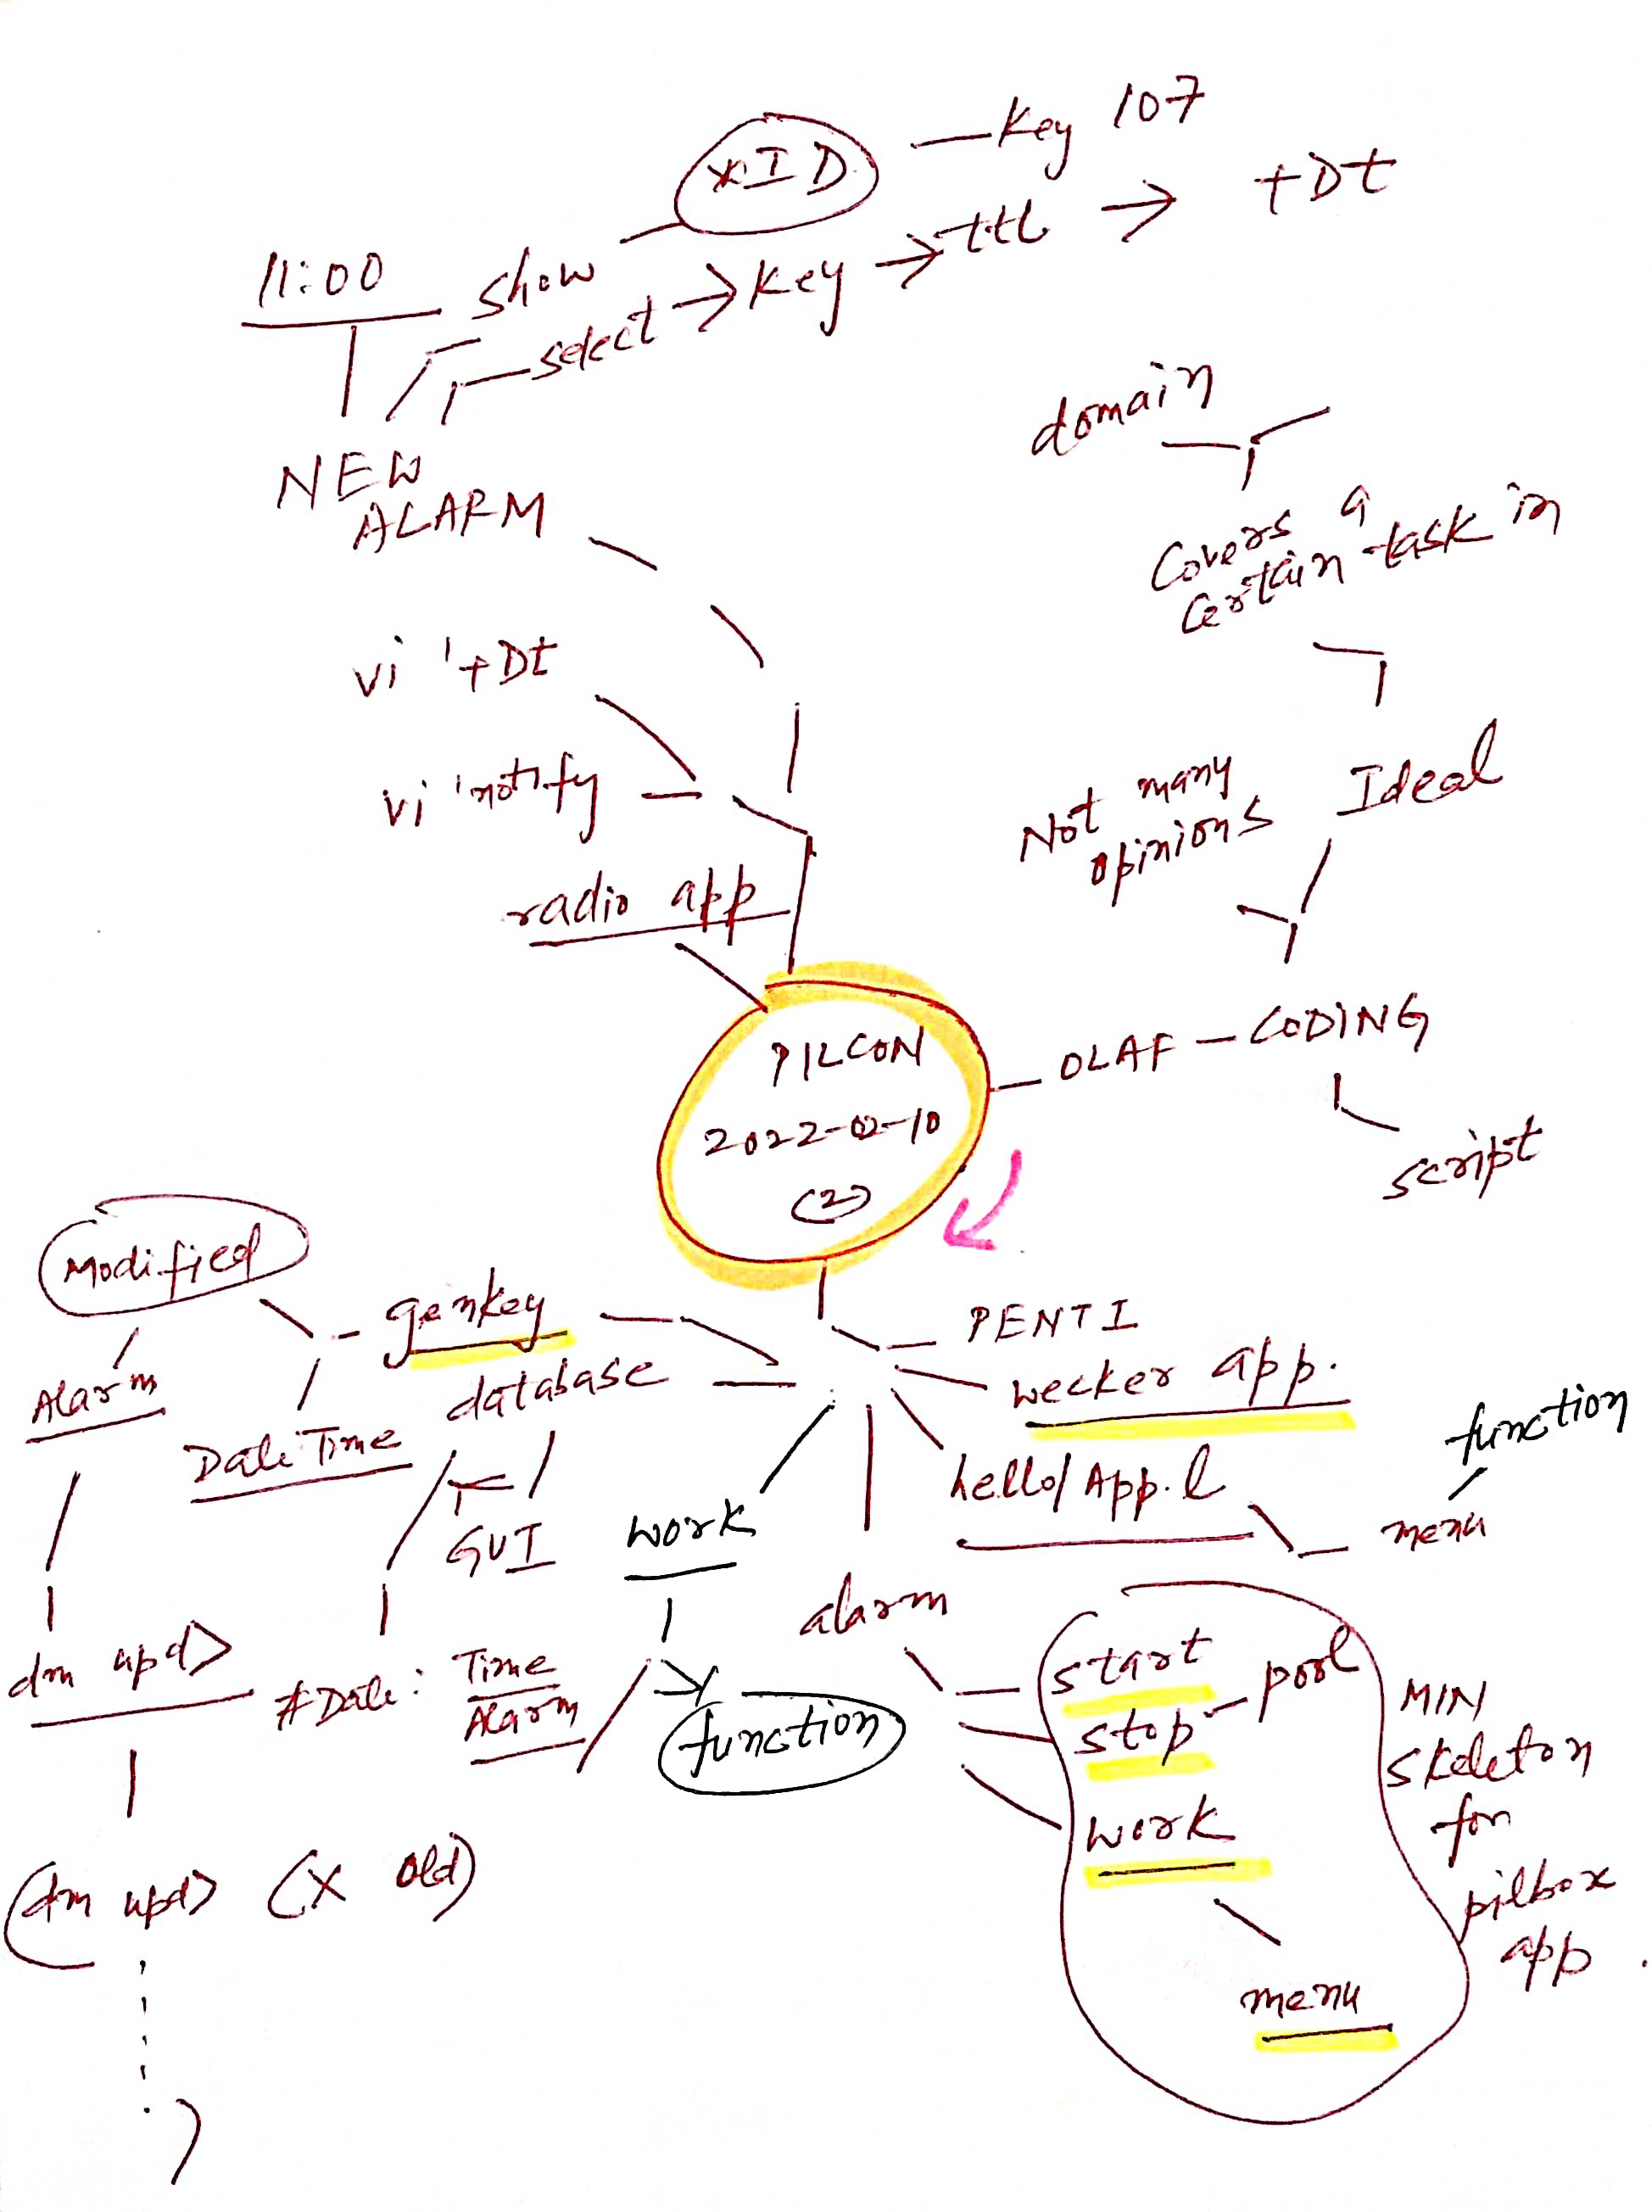 Key 107
*ID
+Dt
ttl
11:00
show
select → Key
NEW
ALARM
domain
Covers a
certain task in
vi '+Dt
vi 'notify
Not many
opinions
Ideal
radio app
PILCON
2022-02-10
(2)
OLAF - CODING
script
Modified
genkey
PENTI
wecker app.
database
Alarm
Date Time
function
hello/App.l
menu
GUI
work
alarm
dm upd>
#Date: Time
Alarm
function
start
stop - pool
work
menu
MIN
skeleton
for
pilbox
app.
(dm upd> (x old)
)